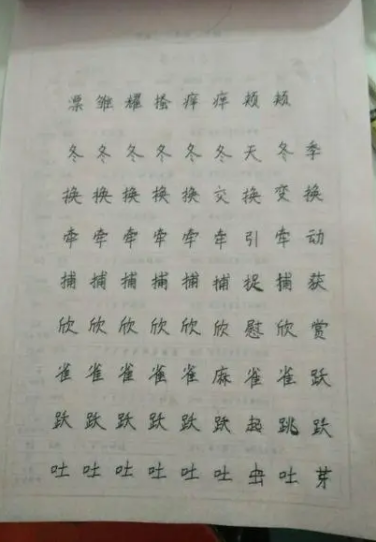 漂 雏 耀 搔 痒 痒 颊 颊
冬 冬 冬 冬 冬 冬 天 冬 季
换 换 换 换 换 交 换 变 换
牵 牵 牵 牵 牵 牵 引 牵 动
捕 捕 捕 捕 捕 捕 捉 捕 获
欣 欣 欣 欣 欣 欣 慰 欣 赏
雀 雀 雀 雀 雀 麻 雀 雀 跃
跃 跃 跃 跃 跃 跃 越 跳 跃
吐 吐 吐 吐 吐 吐 虫 吐 芽